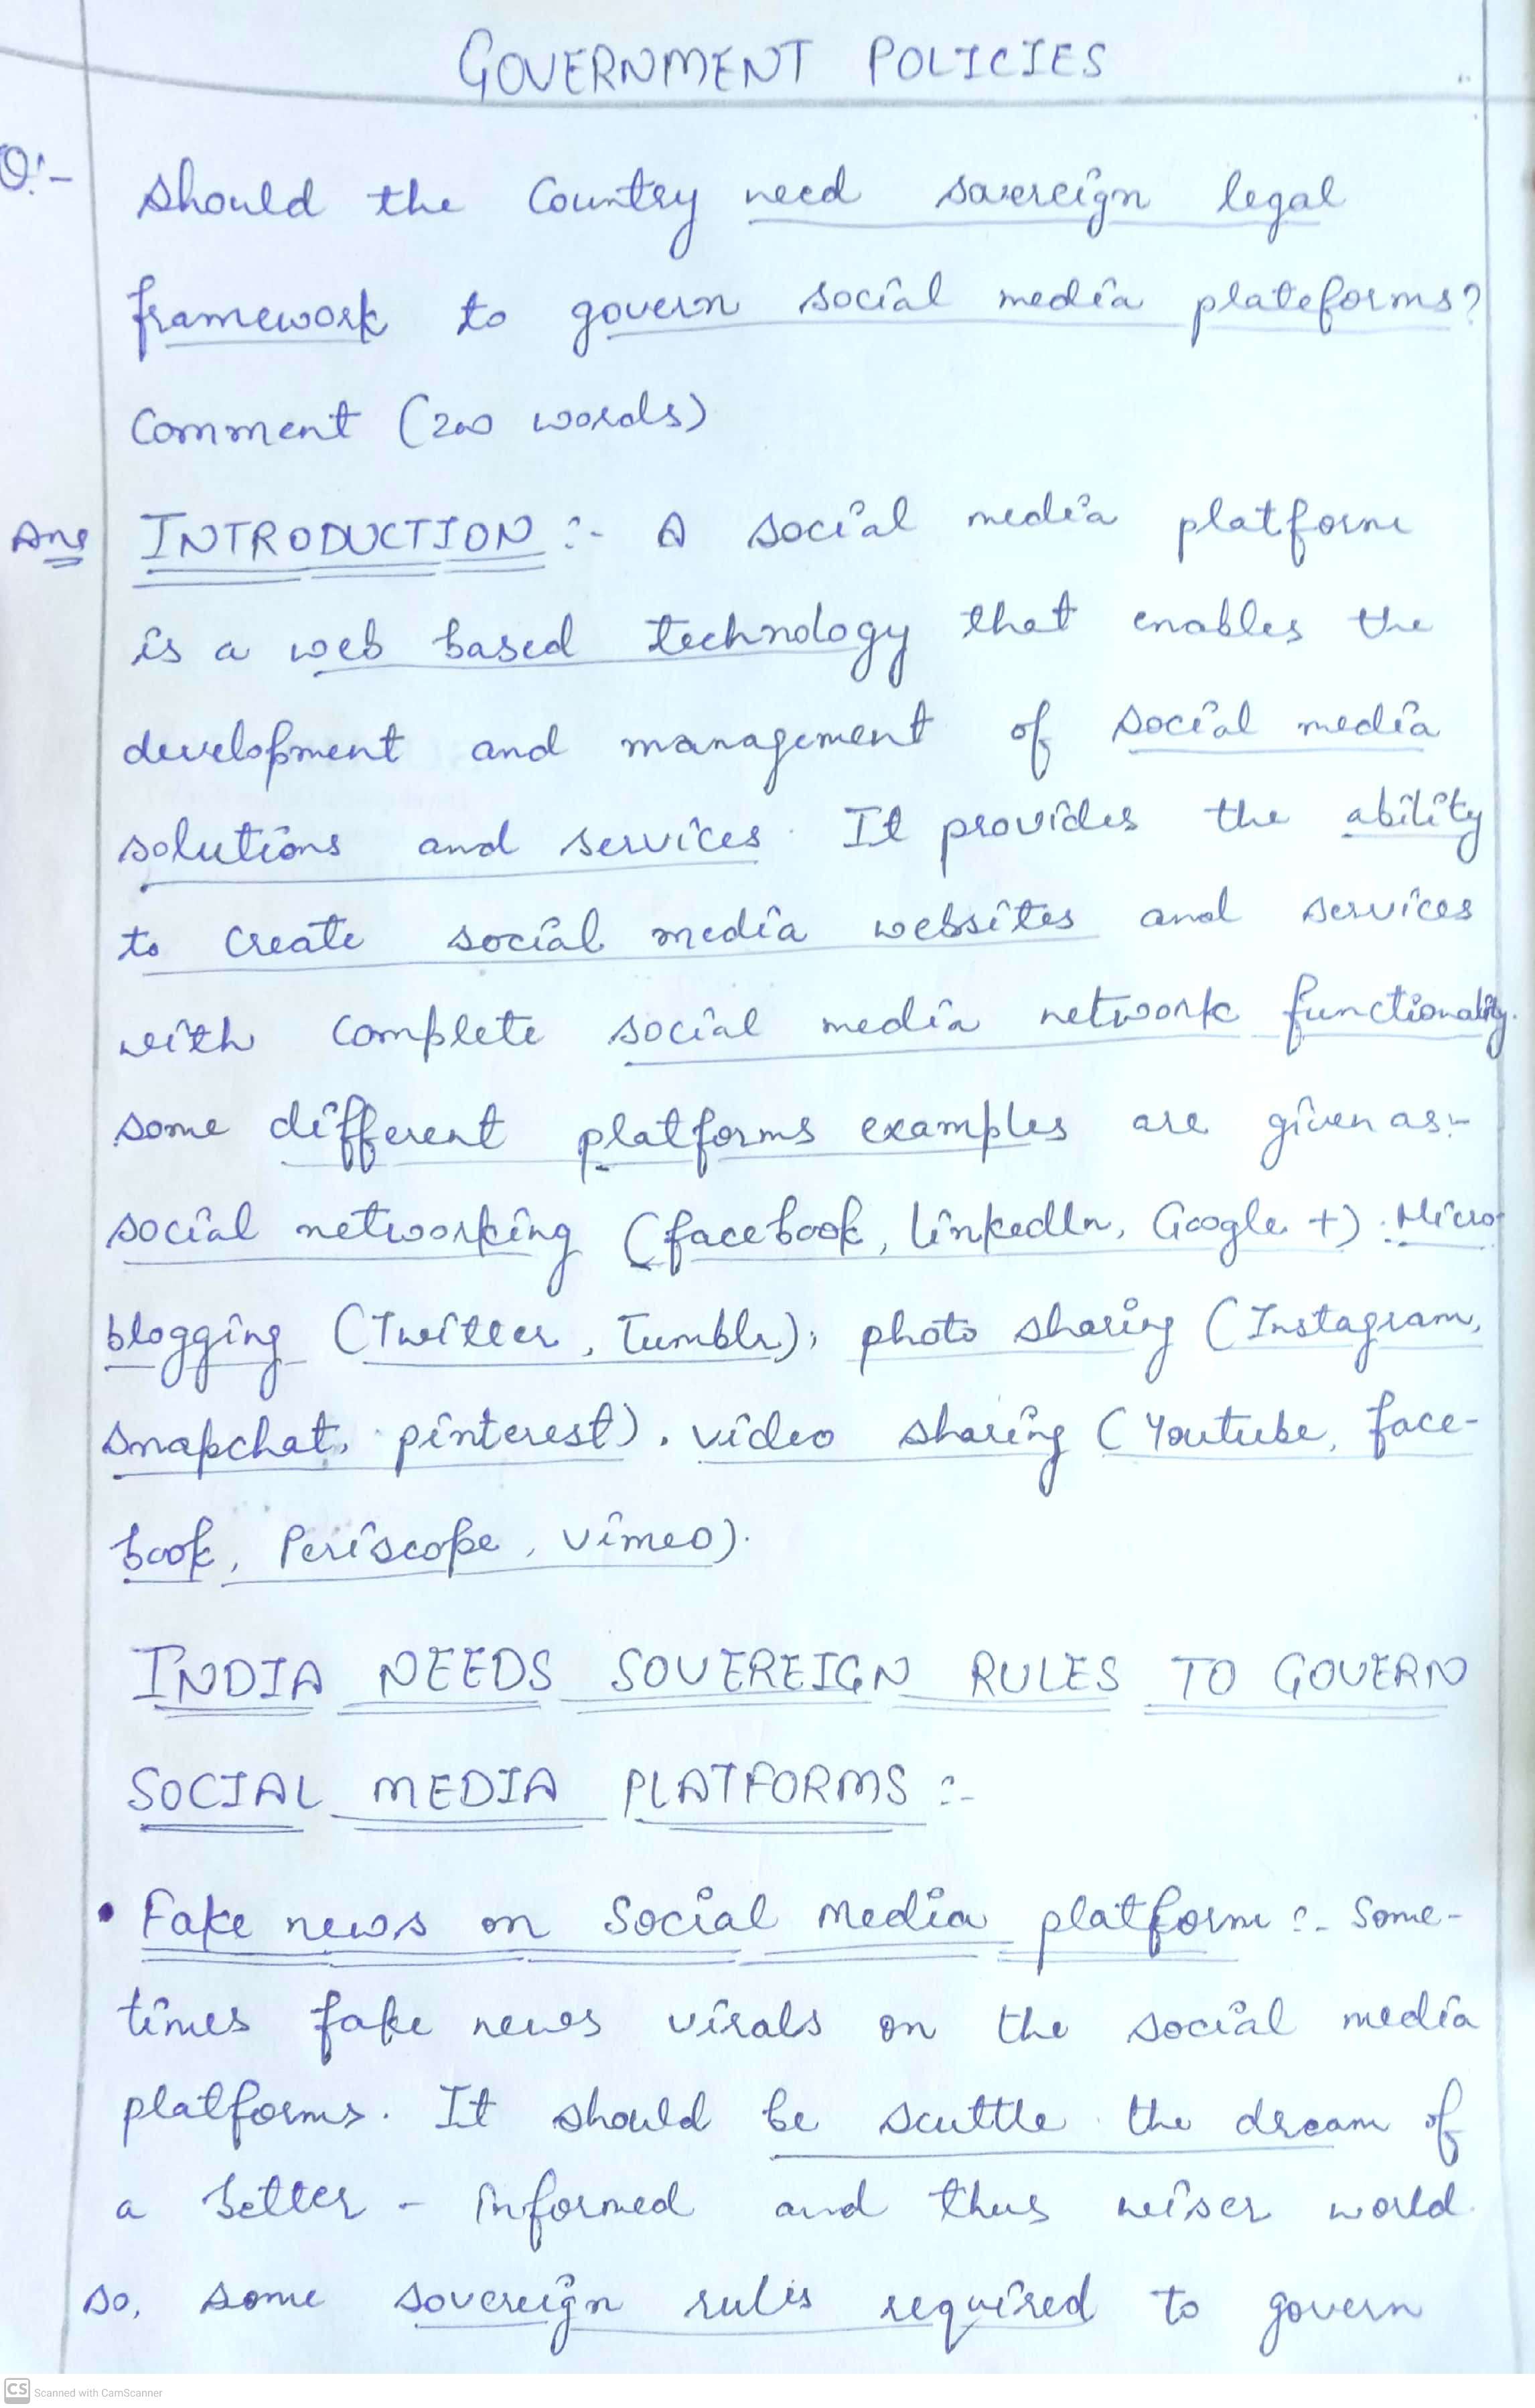 GOVERNMENT POLICIES
Q:- should the Country need sovereign legal
framework to govern social media plateforms?
Comment (200 words)
Ans INTRODUCTION :- A social media platform
is a web based technology that enables the
development and management of social media
solutions and services. It provides the ability
to create social media websites and services
with complete social media network functionality.
some different platforms examples are given as:-
social networking (facebook, linkedIn, Google +). Micro-
blogging (Twitter, Tumblr), photo sharing (Instagram,
snapchat, pinterest), video sharing (Youtube, face-
book, Periscope, vimeo).
INDIA NEEDS SOVEREIGN RULES TO GOVERN
SOCIAL MEDIA PLATFORMS :-
• Fake news on Social Media platform :- Some-
times fake news virals on the social media
platforms. It should be scuttle the dream of
a better - informed and thus wiser world.
so, some sovereign rules required to govern
CS Scanned with CamScanner